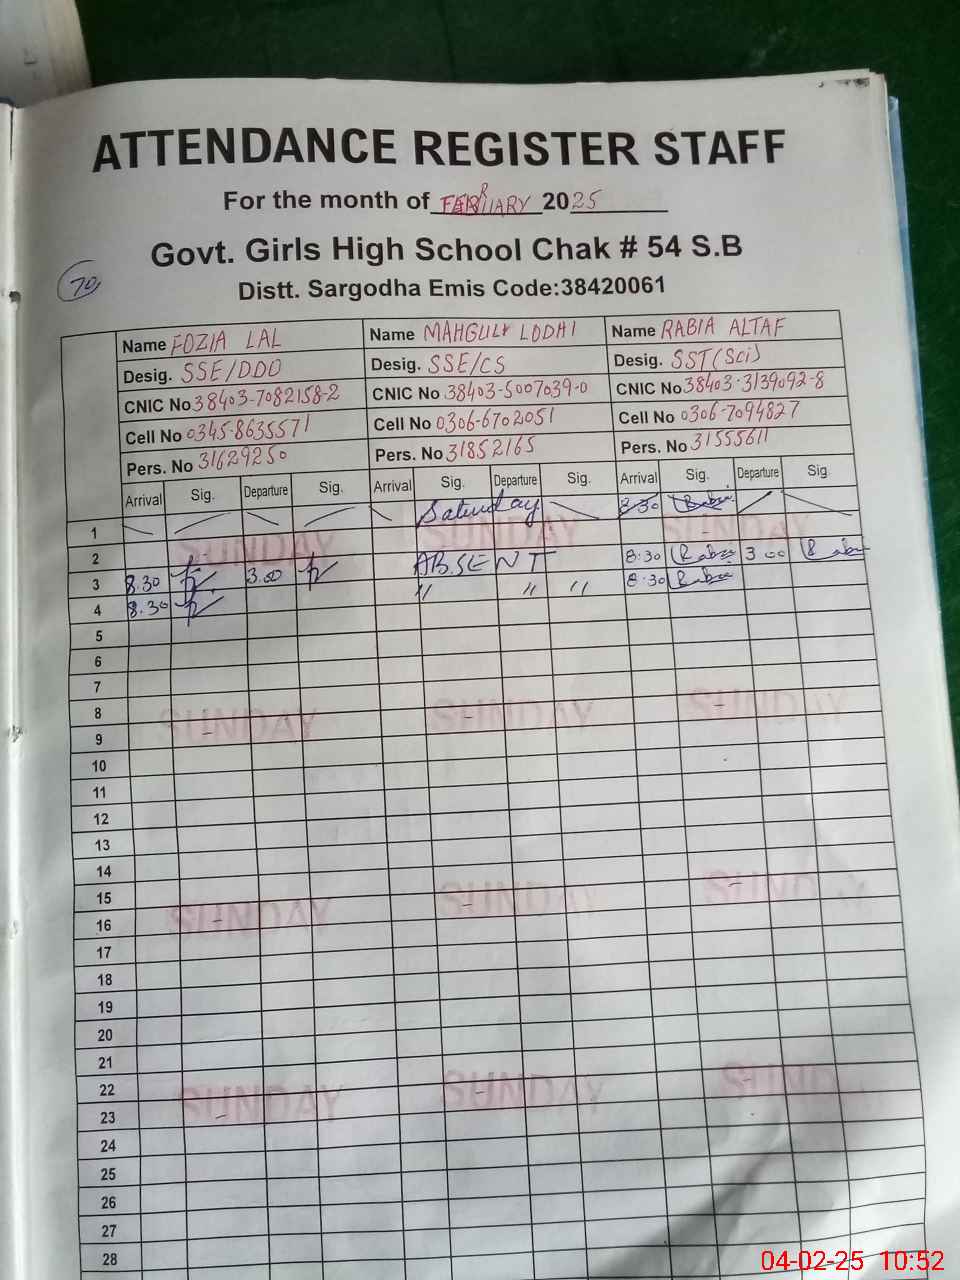 ATTENDANCE REGISTER STAFF
For the month of FEBRUARY 2025
Govt. Girls High School Chak # 54 S.B
70
Distt. Sargodha Emis Code:38420061
Name FOZIA LAL Name MAHGULK LODHI Name RABIA ALTAF
Desig. SSE/DDO Desig. SSE/CS Desig. SST(Sci)
CNIC No 38403-7082158-2 CNIC No 38403-5007039-0 CNIC No 38403-3139092-8
Cell No 0345-8635571 Cell No 0306-6702051 Cell No 0306-7094827
Pers. No 31629250 Pers. No 31852165 Pers. No 31555611
Arrival Sig. Departure Sig. Arrival Sig. Departure Sig. Arrival Sig. Departure Sig.
1 Saturday 8:30 Rabia
2 SUNDAY SUNDAY SUNDAY
3 8.30 3.00 ABSENT 8:30 Rabia 3 00 Rabia
4 8.30 " " " 8:30 Rabia
5
6
7
8
9 SUNDAY SUNDAY SUNDAY
10
11
12
13
14
15
16 SUNDAY SUNDAY SUNDAY
17
18
19
20
21
22
23 SUNDAY SUNDAY SUNDAY
24
25
26
27
28
04-02-25 10:52